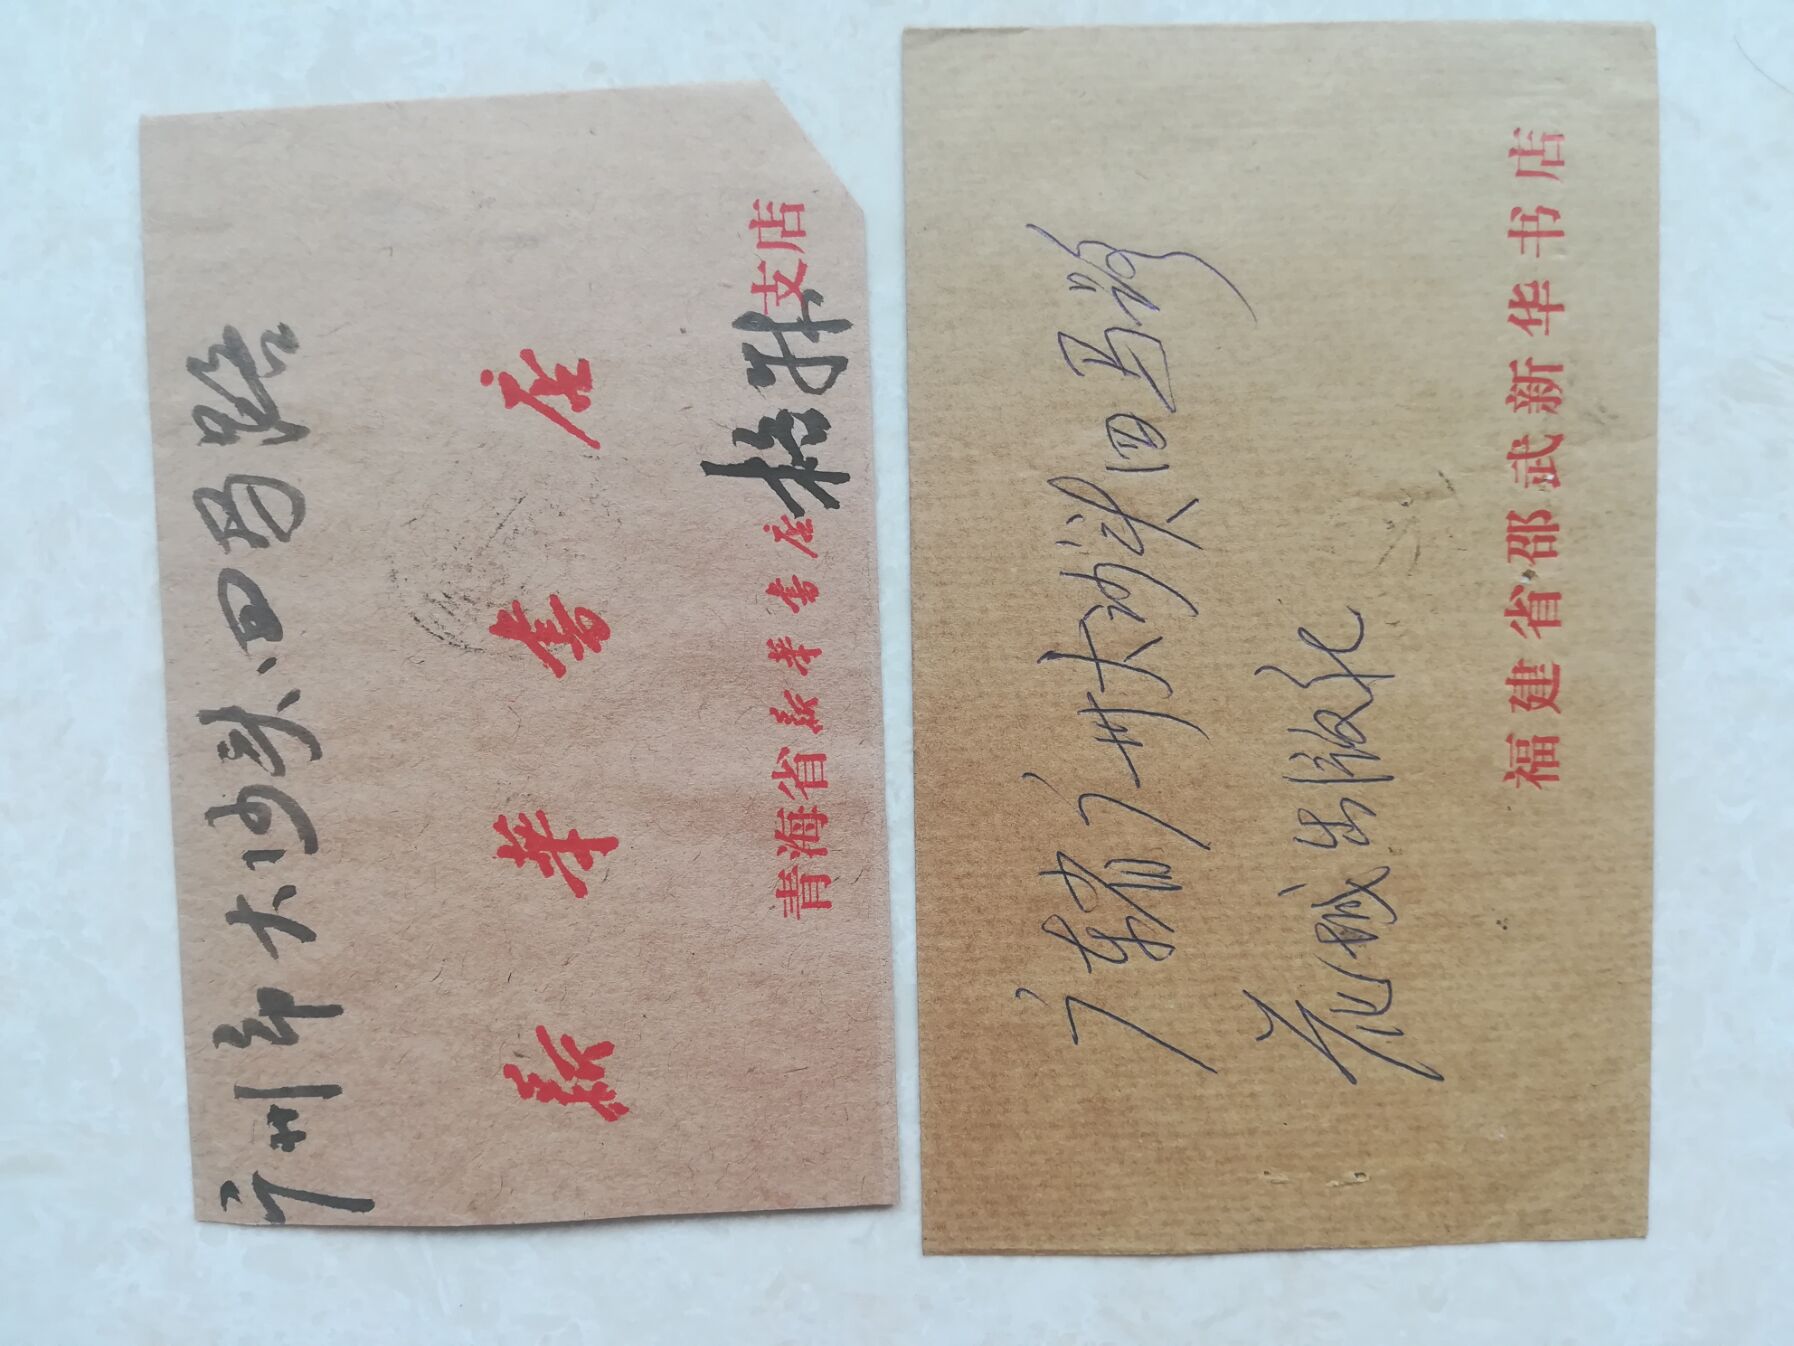 广州市大沙头四马路
新华书店
青海省新华书店格尔木支店
广东省广州大沙头四马路
花城出版社
福建省邵武新华书店